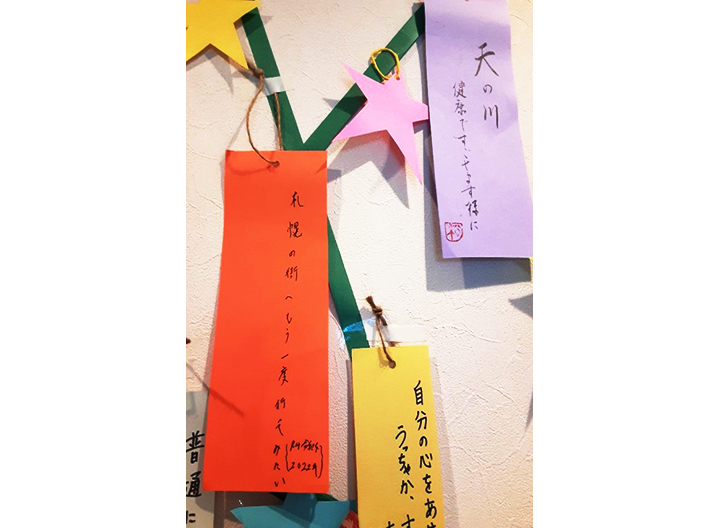 天の川
健康ですごせます様に
札幌の街へもう一度行ってみたい
2022年
自分の心をあ
うっちゃか、す
普通に